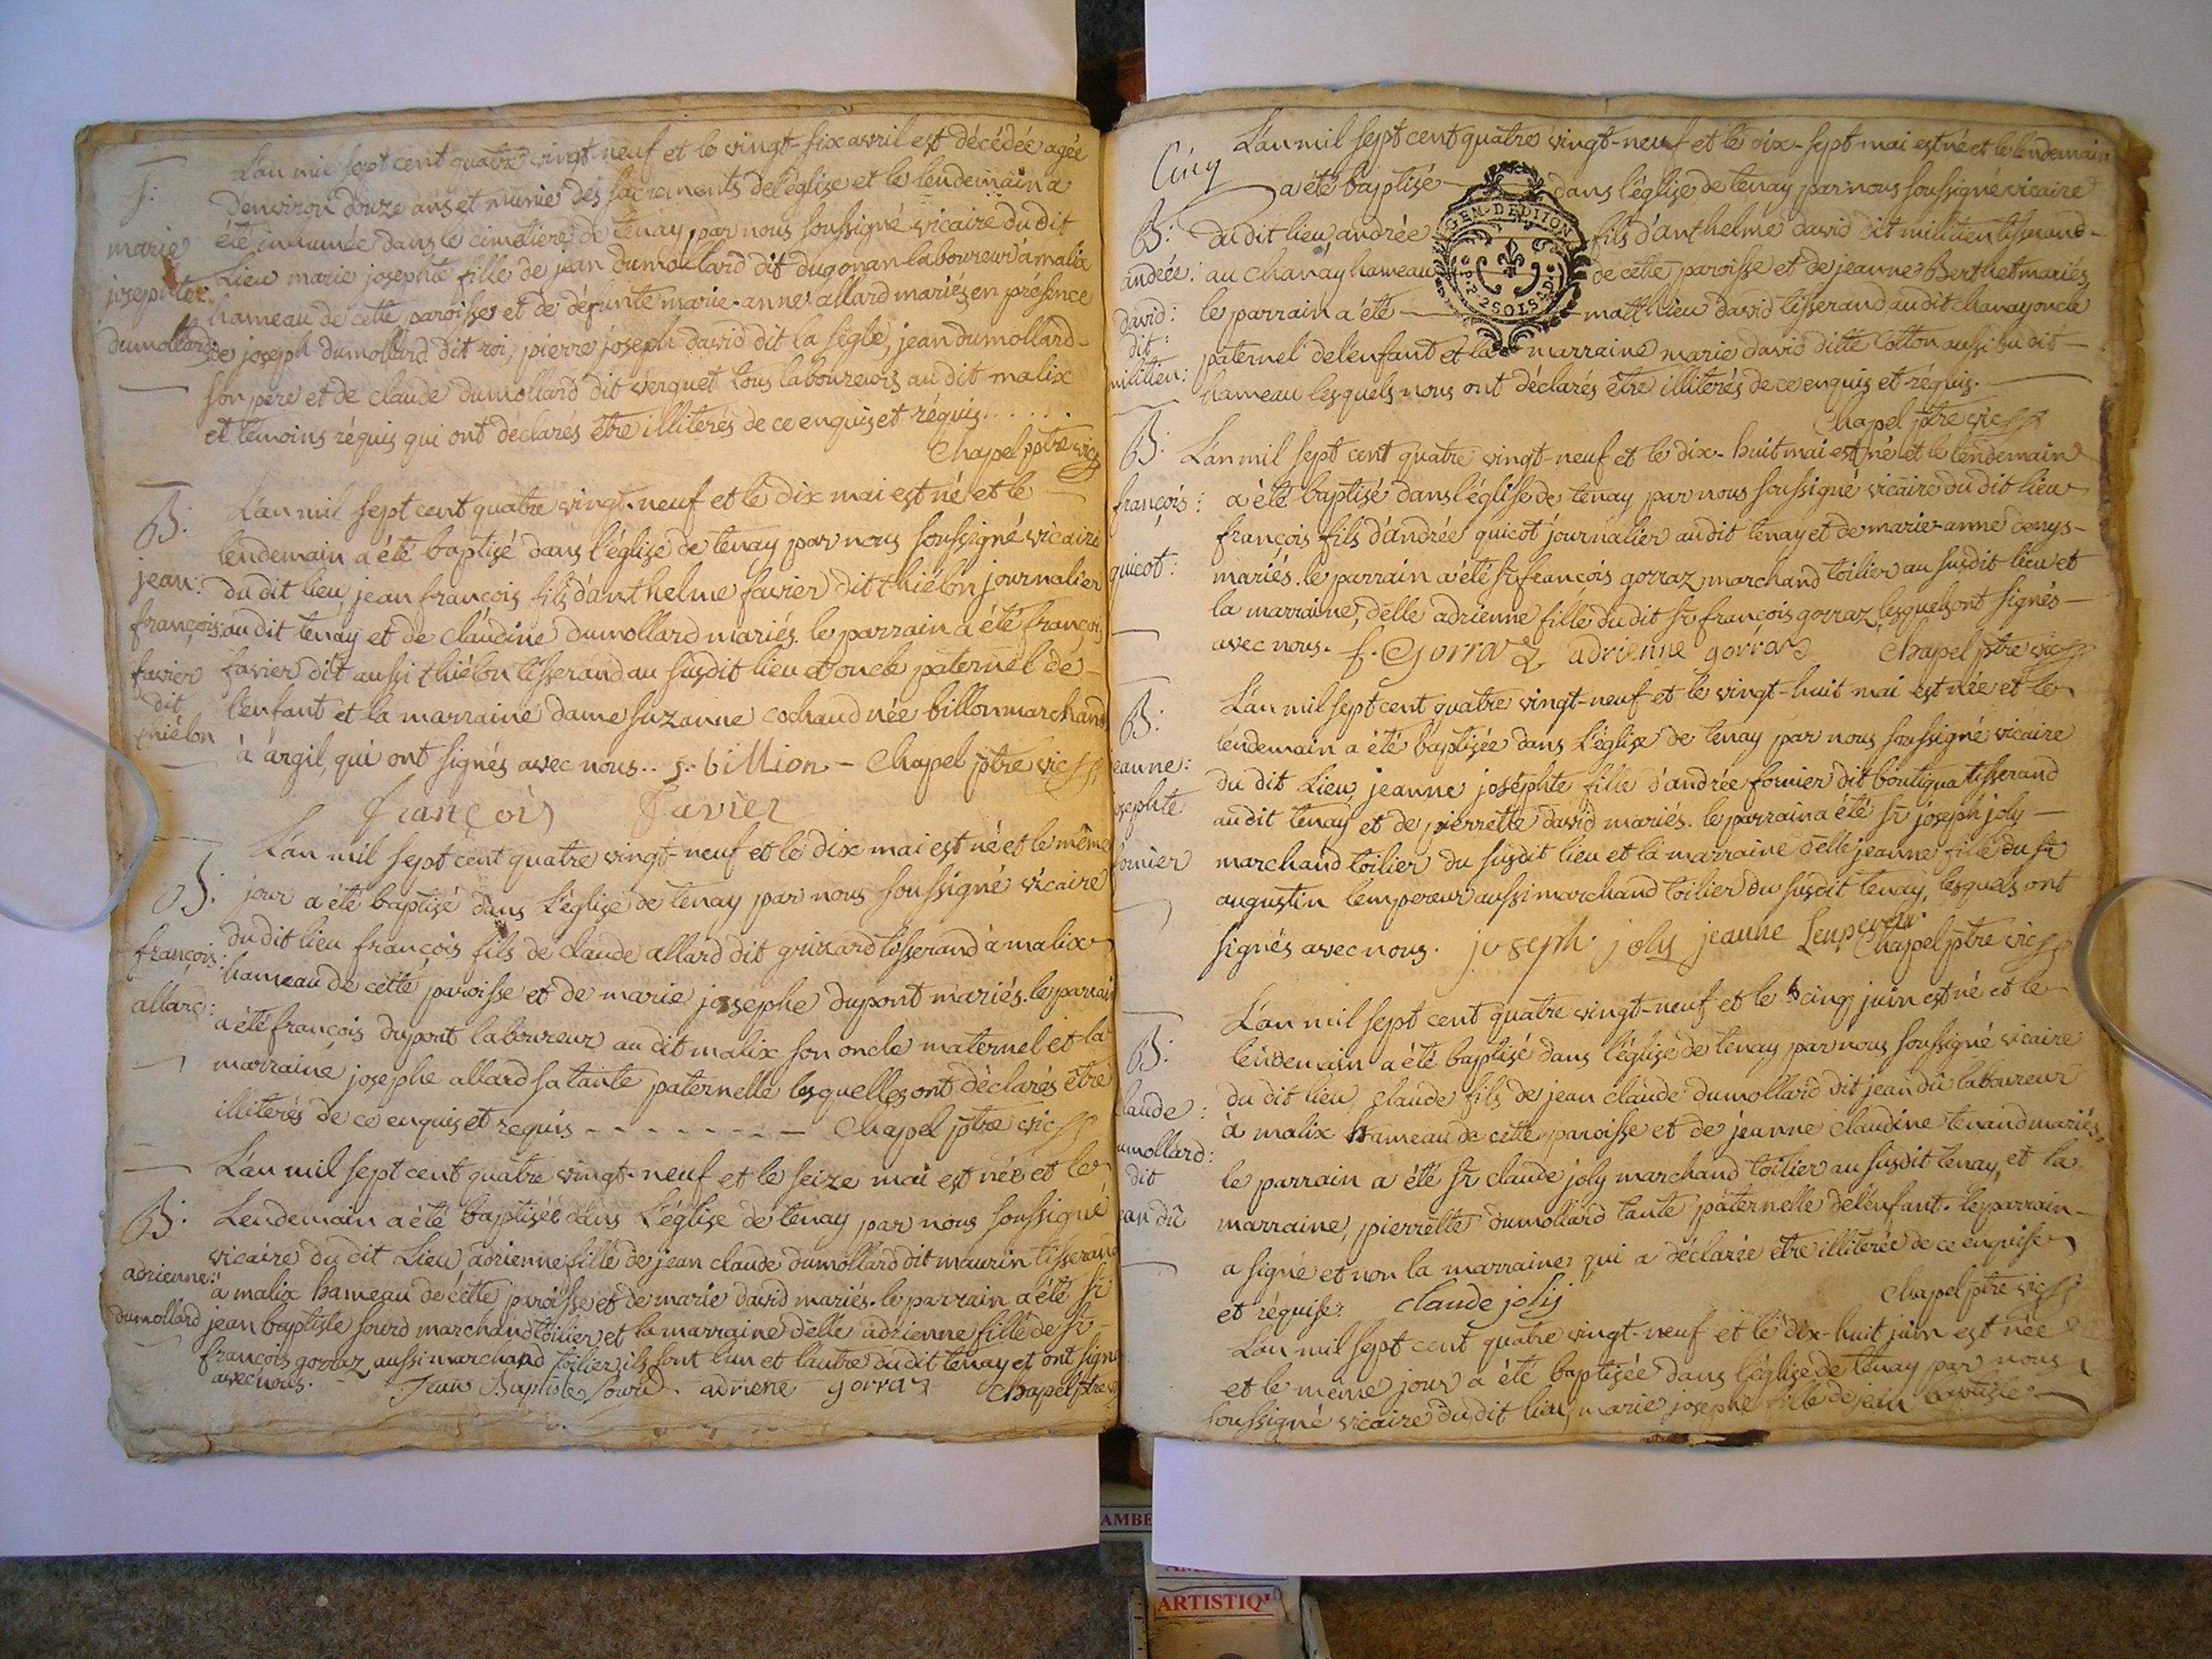 L'an mil sept cent quatre vingt-neuf et le vingt-six avril est décédée agée
S:
d'environ douze ans et munie des sacrements de l'église et le lendemain a
été inhumée dans le cimetiere de tenay par nous soussigné vicaire du dit
marie
lieu marie josephte fille de jean dumollard dit dugonan laboureur à malix
josephte
hameau de cette paroisse et de défunte marie-anne allard mariés en présence
dumollard:
de joseph dumollard dit roi, pierre joseph david dit la sigle, jean dumollard-
son pere et de claude dumollard dit verguet tous laboureurs au dit malix
et temoins réquis qui ont déclarés être illiterés de ce enquis et réquis......
Chapel ptre vic
B:
L'an mil sept cent quatre vingt-neuf et le dix mai est né et le
lendemain a été baptisé dans l'église de tenay par nous soussigné vicaire
jean:
du dit lieu, jean françois fils d'anthelme favier dit thiélon journalier
françois:
au dit tenay et de claudine dumollard mariés. le parrain a été françois
favier
favier dit aussi thiélon tisserand au susdit lieu et oncle paternel de-
dit
l'enfant et la marraine dame suzanne cochaud née billon marchand
thiélon
à argil, qui ont signés avec nous.. s. billion - Chapel ptre vic
françois favier
L'an mil sept cent quatre vingt-neuf et le dix mai est né et le même
B:
jour a été baptisé dans l'église de tenay par nous soussigné vicaire
du dit lieu françois fils de claude allard dit grizard tisserand à malix
françois:
hameau de cette paroisse et de marie josephe dupont mariés. le parrain
allard:
a été françois dupont laboureur au dit malix son oncle maternel et la
marraine josephe allard sa tante paternelle lesquelles ont déclarés être
illiterés de ce enquis et requis - - - - - - - Chapel ptre vic
L'an mil sept cent quatre vingt-neuf et le seize mai est née et le
B:
lendemain a été baptisée dans l'église de tenay par nous soussigné
vicaire du dit lieu adrienne fille de jean claude dumollard dit maurin tisserand
adrienne:
à malix hameau de cette paroisse et de marie david mariés. le parrain a été sr
dumollard
jean baptiste sourd marchand toilier et la marraine delle adrienne fille de sr-
françois gorraz aussi marchand toilier, ils sont l'un et l'autre du dit tenay et ont signé
avec nous. Jean Baptiste Sourd. adriene gorraz Chapel ptre
Cinq
L'an mil sept cent quatre vingt-neuf et le dix-sept mai est né et le lendemain
a été baptisé dans l'église de tenay par nous soussigné vicaire
GEN-DEDIION
2 SOLS
B:
du dit lieu andrée fils d'anthelme david dit militien tisserand-
andrée:
au chanay hameau de cette paroisse et de jeanne Berthet mariés,
david:
le parrain a été matthieu david tisserand au dit chanay oncle
dit:
paternel de l'enfant et la marraine marie david ditte Cotton aussi du dit-
militien:
hameau lesquels nous ont déclarés être illiterés de ce enquis et réquis.
Chapel ptre vic
B:
L'an mil sept cent quatre vingt-neuf et le dix-huit mai est né et le lendemain
françois:
a été baptisé dans l'église de tenay par nous soussigné vicaire du dit lieu
françois fils d'andrée quicot journalier au dit tenay et de marie-anne denys-
quicot:
mariés. le parrain a été sr françois gorraz marchand toilier au susdit lieu et
la marraine, delle adrienne fille du dit sr françois gorraz, lesquels ont signés-
avec nous. f. Gorraz adrienne gorraz Chapel ptre vic
L'an mil sept cent quatre vingt-neuf et le vingt-huit mai est née et le
B:
lendemain a été baptisée dans l'église de tenay par nous soussigné vicaire
jeanne:
du dit lieu, jeanne joséphte fille d'andrée fornier dit boutiqua tisserand
josephte
au dit tenay et de pierrette david mariés. le parrain a été sr joseph joly-
fornier
marchand toilier du susdit lieu et la marraine delle jeanne fille du sr
augustin lempereur aussi marchand toilier du susdit tenay, lesquels ont
signés avec nous. joseph joly jeanne Lenpereur Chapel ptre vic
L'an mil sept cent quatre vingt-neuf et le cinq juin est né et le
B:
lendemain a été baptisé dans l'église de tenay par nous soussigné vicaire
claude:
du dit lieu, claude fils de jean claude dumollard dit jean dû laboureur
dumollard:
à malix hameau de cette paroisse et de jeanne claudine tenand mariés.
dit
le parrain a été sr claude joly marchand toilier au susdit tenay, et la
jean dû
marraine, pierrette dumollard tante paternelle de l'enfant. le parrain-
a signé et non la marraine qui a déclarée être illiterée de ce enquise
et réquise: claude joly Chapel ptre vic
L'an mil sept cent quatre vingt-neuf et le dix-huit juin est née
et le même jour a été baptisée dans l'église de tenay par nous
soussigné vicaire du dit lieu, marie josephe fille de jean baptiste
AMBE
ARTISTIQU